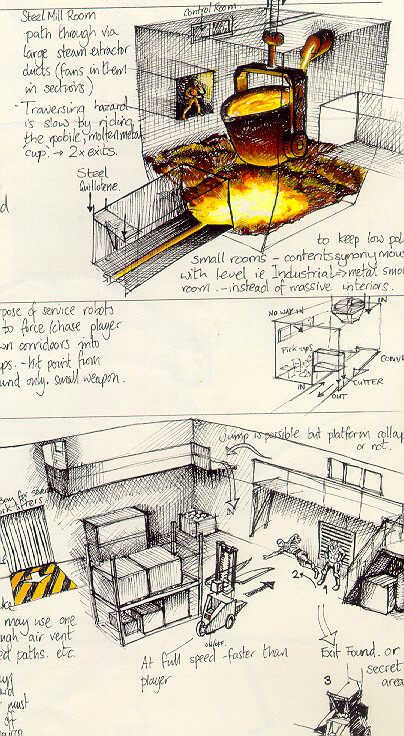 Steel Mill Room
path through via
large steam extractor
ducts (fans in them
in sections)
- Traversing hazard
is slow by riding
the mobile, molten metal
cup. → 2x exits.
Control Room
Steel
Guillotene.
d
to keep low pol
Small rooms - contents synonymous
with level ie Industrial ⇒ metal sm
room. - instead of massive interiors.
pose of service robots
to force/chase player
wn corridoors into
ps. - hit point from
und only. small weapon.
NO WAY IN
IN
Pick-ups
CONVE
CUTTER
IN
OUT
Jump is possible but platform collap
or not.
may use one
ugh air vent
ed paths. etc.
must
of
ON/OFF.
At full speed - faster than
player
2
Exit Found. or
secret
area
3